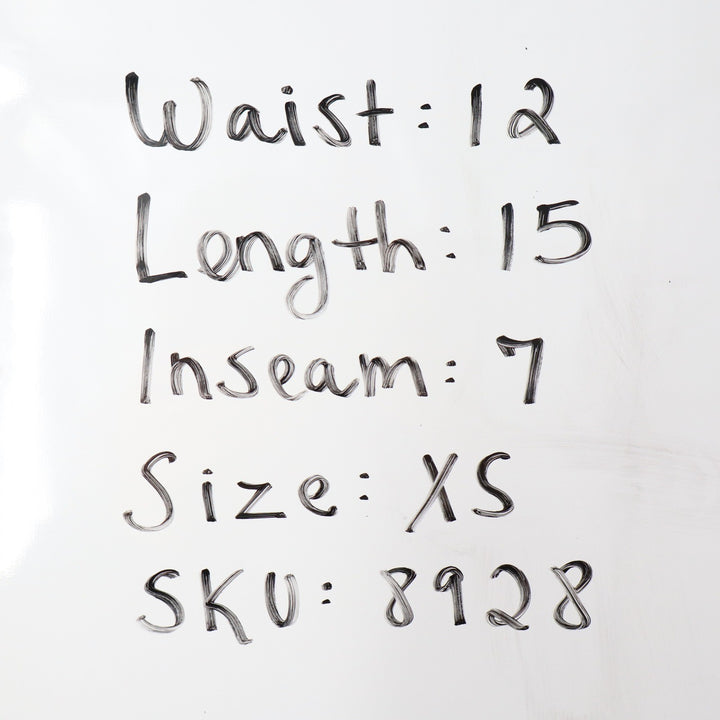 Waist: 12
Length: 15
Inseam: 7
Size: XS
SKU: 8928